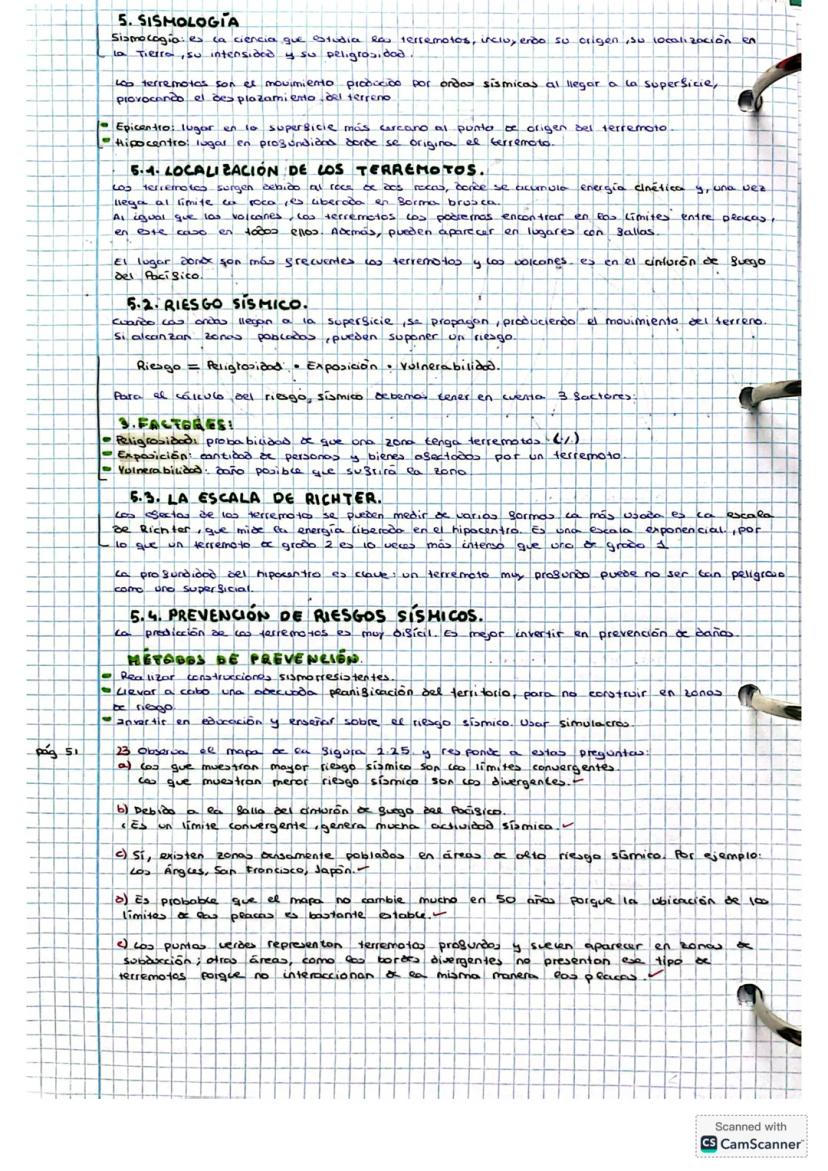 5. SISMOLOGÍA
Sismología: es la ciencia que estudia los terremotos, incluyendo su origen, su localización en
la Tierra, su intensidad y su peligrosidad.
Los terremotos son el movimiento producido por ondas sísmicas al llegar a la superficie,
provocando el desplazamiento del terreno.
Epicentro: lugar en la superficie más cercano al punto de origen del terremoto.
Hipocentro: lugar en profundidad donde se origina el terremoto.
5.1. LOCALIZACIÓN DE LOS TERREMOTOS.
Los terremotos surgen debido al roce de dos rocas, donde se acumula energía cinética y, una vez
llega al límite la roca, es liberada en forma brusca.
Al igual que los volcanes, los terremotos los podremos encontrar en los límites entre placas,
en este caso en todos ellos. Además, pueden aparecer en lugares con fallas.
El lugar donde son más frecuentes los terremotos y los volcanes es en el cinturón de fuego
del Pacífico.
5.2. RIESGO SÍSMICO.
Cuando las ondas llegan a la superficie, se propagan, produciendo el movimiento del terreno.
Si alcanzan zonas pobladas, pueden suponer un riesgo.
Riesgo = Peligrosidad · Exposición · Vulnerabilidad.
Para el cálculo del riesgo, sísmico debemos tener en cuenta 3 factores:
3. FACTORES:
Peligrosidad: probabilidad de que una zona tenga terremotos. (%)
Exposición: cantidad de personas y bienes afectados por un terremoto.
Vulnerabilidad: daño posible que sufrirá la zona
5.3. LA ESCALA DE RICHTER.
Los efectos de los terremotos se pueden medir de varias formas la más usada es la escala
de Richter, que mide la energía liberada en el hipocentro. Es una escala exponencial, por
lo que un terremoto de grado 2 es 10 veces más intenso que uno de grado 1
La profundidad del hipocentro es clave: un terremoto muy profundo puede no ser tan peligroso
como uno superficial.
5.4. PREVENCIÓN DE RIESGOS SÍSMICOS.
La predicción de los terremotos es muy difícil. Es mejor invertir en prevención de daños.
MÉTODOS DE PREVENCIÓN.
Realizar construcciones sismorresistentes.
Llevar a cabo una adecuada planificación del territorio, para no construir en zonas
de riesgo.
Invertir en educación y enseñar sobre el riesgo sísmico. Usar simulacros.
pág 51 23 Observa el mapa de la figura 2.25. y responde a estas preguntas:
a) Los que muestran mayor riesgo sísmico son los límites convergentes.
Los que muestran menor riesgo sísmico son los divergentes.
b) Debido a la falla del cinturón de fuego del Pacífico.
Es un límite convergente, genera mucha actividad sísmica.
c) Sí, existen zonas densamente pobladas en áreas de alto riesgo sísmico. Por ejemplo:
Los Ángles, San Francisco, Japón.
d) Es probable que el mapa no cambie mucho en 50 años porque la ubicación de los
límites de las placas es bastante estable.
e) Los puntos verdes representan terremotos profundos y suelen aparecer en zonas de
subducción; otras áreas, como los bordes divergentes no presentan ese tipo de
terremotos porque no interaccionan de la misma manera las placas.
Scanned with
CS CamScanner